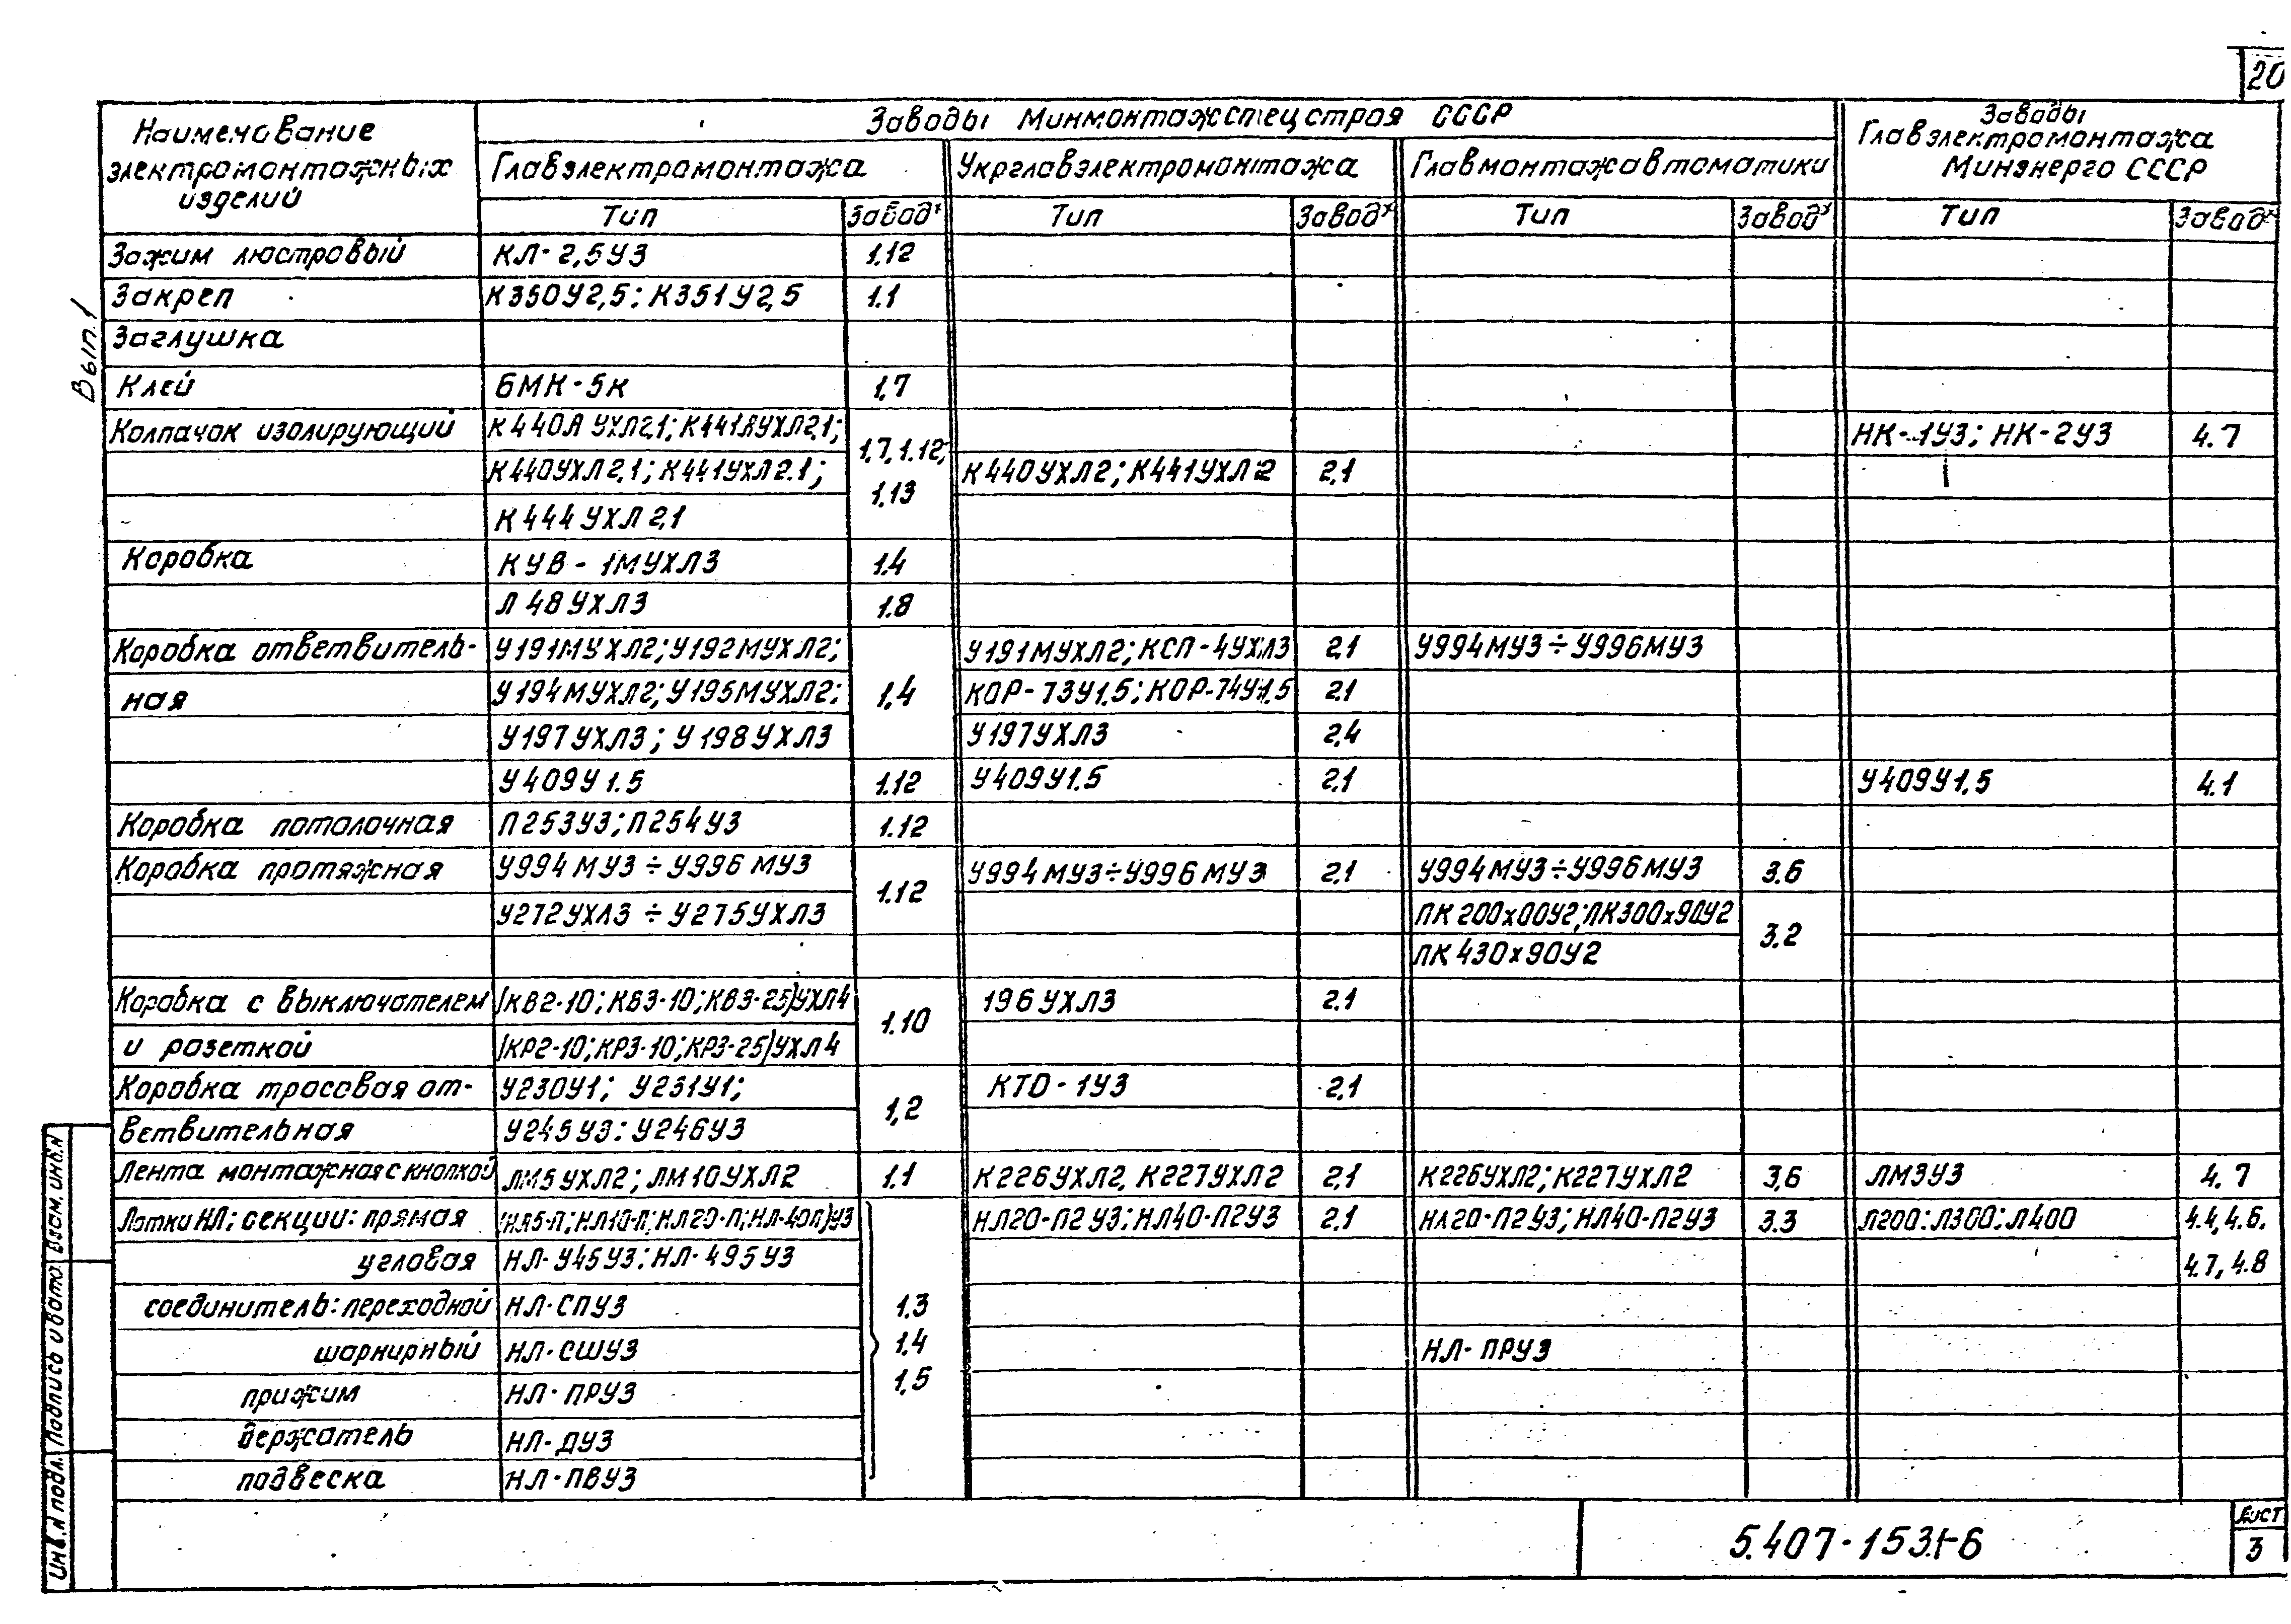 20
Наименование электромонтажных изделий
Заводы Минмонтажспецстроя СССР
Заводы Главэлектромонтажа Минэнерго СССР
Главэлектромонтажа Укрглавэлектромонтажа Главмонтажавтоматики
Тип Завод* Тип Завод* Тип Завод* Тип Завод*
Вып. 1
Зажим люстровый КЛ-2,5У3 1.12
Закреп К350У2,5; К351У2,5 1.1
Заглушка
Клей БМК-5К 1,7
Колпачок изолирующий К440А УХЛ2,1; К441АУХЛ2,1; 1,7, 1.12, НК-1У3; НК-2У3 4.7
К440УХЛ2,1; К441УХЛ2.1; 1,13 К440УХЛ2; К441УХЛ2 2,1
К444УХЛ2,1
Коробка КУВ-1МУХЛ3 1.4
Л48УХЛ3 1.8
Коробка ответвитель- У191МУХЛ2; У192МУХЛ2; У191МУХЛ2; КСП-4УХЛ3 2,1 У994МУ3÷У996МУ3
ная У194МУХЛ2; У195МУХЛ2; 1,4 КОР-73У1,5; КОР-74У1,5 2.1
У197УХЛ3; У198УХЛ3 У197УХЛ3 2,4
У409У1.5 1.12 У409У1.5 2.1 У409У1.5 4.1
Коробка потолочная П253У3; П254У3 1.12
Коробка протяжная У994МУ3÷У996МУ3 1.12 У994МУ3÷У996МУ3 2.1 У994МУ3÷У996МУ3 3.6
У272УХЛ3÷У275УХЛ3 ПК200х00У2; ПК300х90У2 3.2
ПК430х90У2
Коробка с выключателем (КВ2-10; КВ3-10; КВ3-25)УХЛ4 1.10 196УХЛ3 2.1
и розеткой (КР2-10; КР3-10; КР3-25)УХЛ4
Коробка тросовая от- У230У1; У231У1; 1,2 КТО-1У3 2,1
ветвительная У245У3: У246У3
Лента монтажная с кнопкой ЛМ5УХЛ2; ЛМ10УХЛ2 1.1 К226УХЛ2, К227УХЛ2 2,1 К226УХЛ2; К227УХЛ2 3,6 ЛМ3У3 4.7
Лотки НЛ; секции: прямая (НЛ5-П; НЛ10-П; НЛ20-П; НЛ-40П)У3 НЛ20-П2У3; НЛ40-П2У3 2.1 НЛ20-П2У3; НЛ40-П2У3 3.3 Л200: Л300: Л400 4.4, 4.6.
угловая НЛ-У45У3: НЛ-495У3 4.7, 4.8
соединитель: переходной НЛ-СПУ3 1.3
шарнирный НЛ-СШУ3 1.4 НЛ-ПРУ3
прижим НЛ-ПРУ3 1,5
держатель НЛ-ДУ3
подвеска НЛ-ПВУ3
Инв. N подл. Подпись и дата Взам. инв. N
5.407-153.1-6
Лист
3